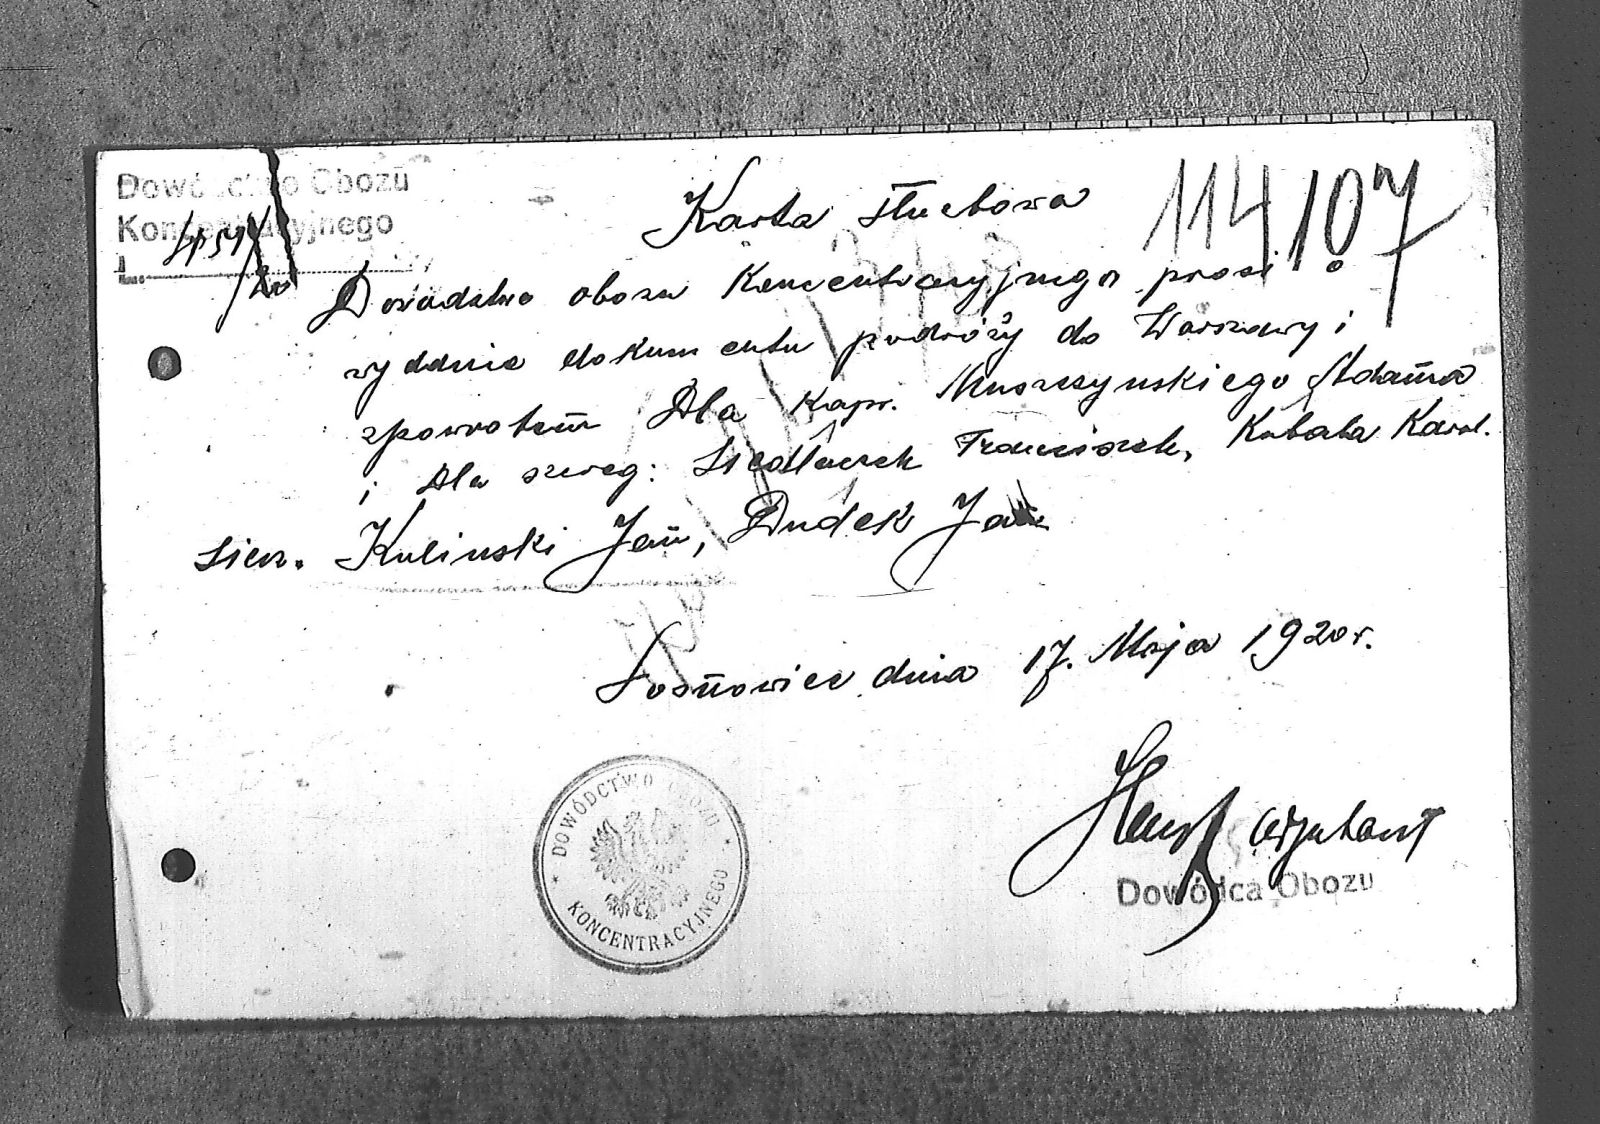 Dowództwo Obozu
Koncentracyjnego
L.
Karta słuchowa
114/107
Dowództwo obozu Koncentracyjnego prosi o
wydanie dokumentu podróży do Warszawy i
zpowrotem Dla Kapr. Muszczynskiego Adama
i Dla szereg: Siedlaczek Franciszek, Kubala Karol.
Kulinski Jan, Dudek Jan
Sosnowiec dnia 17. Maja 1920 r.
adjutant
Dowódca Obozu
DOWÓDCTWO OBOZU
KONCENTRACYJNEGO